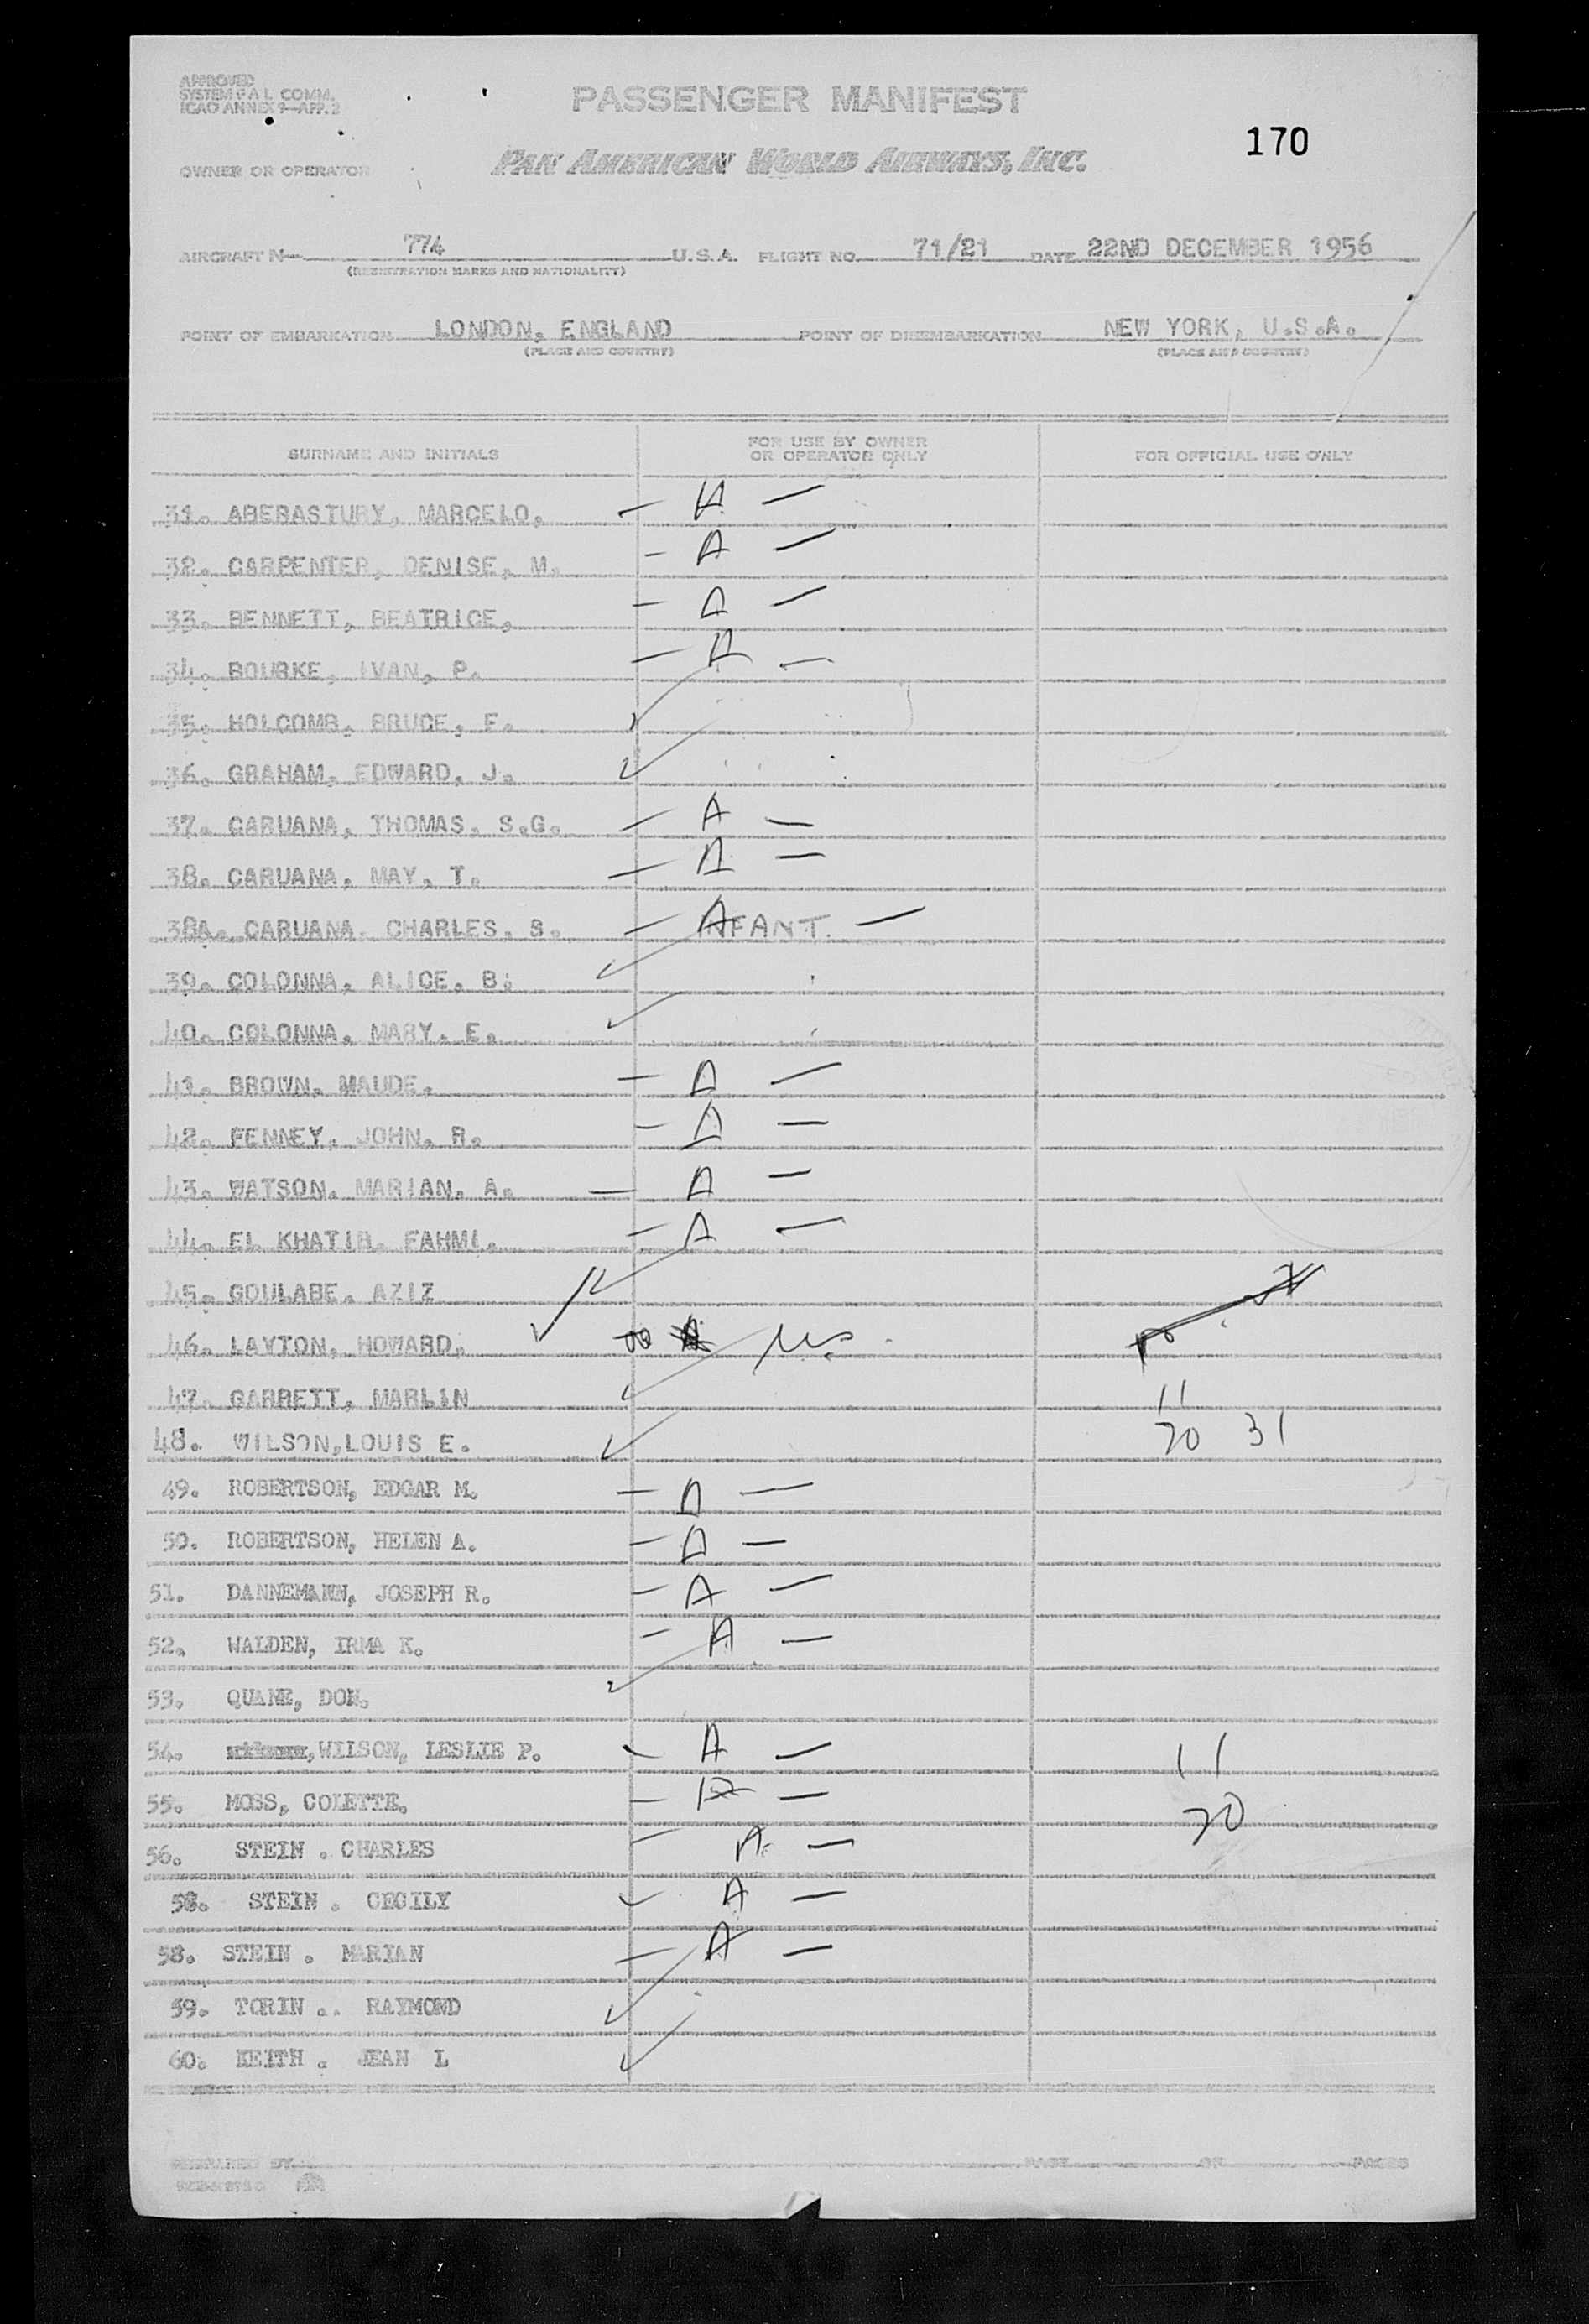 APPROVED
SYSTEM F A L COMM.
ICAO ANNEX 9—APP. 2
PASSENGER MANIFEST
170
OWNER OR OPERATOR
PAN AMERICAN WORLD AIRWAYS, INC.
AIRCRAFT N— 774 U.S.A. FLIGHT NO. 71/21 DATE 22ND DECEMBER 1956
(REGISTRATION MARKS AND NATIONALITY)
POINT OF EMBARKATION LONDON, ENGLAND POINT OF DISEMBARKATION NEW YORK, U.S.A.
(PLACE AND COUNTRY) (PLACE AND COUNTRY)
SURNAME AND INITIALS FOR USE BY OWNER OR OPERATOR ONLY FOR OFFICIAL USE ONLY
31. ABERASTURY, MARCELO. — A —
32. CARPENTER, DENISE, M. — A —
33. BENNETT, BEATRICE, — A —
34. BOURKE, IVAN, P. — A —
35. HOLCOMB, BRUCE, F. ✓
36. GRAHAM, EDWARD. J. ✓
37. CARUANA, THOMAS. S.G. — A —
38. CARUANA, MAY. T. — A —
38A. CARUANA. CHARLES. S. — A INFANT. —
39. COLONNA, ALICE. B. ✓
40. COLONNA, MARY. E. ✓
41. BROWN, MAUDE. — A —
42. FENNEY, JOHN. R. — A —
43. WATSON, MARIAN. A. — A —
44. EL KHATIB, FAHMI. — A —
45. GOULABE. AZIZ ✓
46. LAYTON, HOWARD. ✓
47. GARRETT, MARLIN ✓ 11
48. WILSON,LOUIS E. ✓ 20 31
49. ROBERTSON, EDGAR M. — A —
50. ROBERTSON, HELEN A. — A —
51. DANNEMANN, JOSEPH R. — A —
52. WALDEN, IRMA K. — A —
53. QUANE, DON. ✓
54. ,WILSON, LESLIE P. — A — 11
55. MOSS, COLETTE. — A — 20
56. STEIN . CHARLES — A —
58. STEIN . CECILY — A —
58. STEIN . MARIAN — A —
59. TORIN .. RAYMOND ✓
60. KEITH . JEAN L ✓
PREPARED BY PAGE OF PAGES